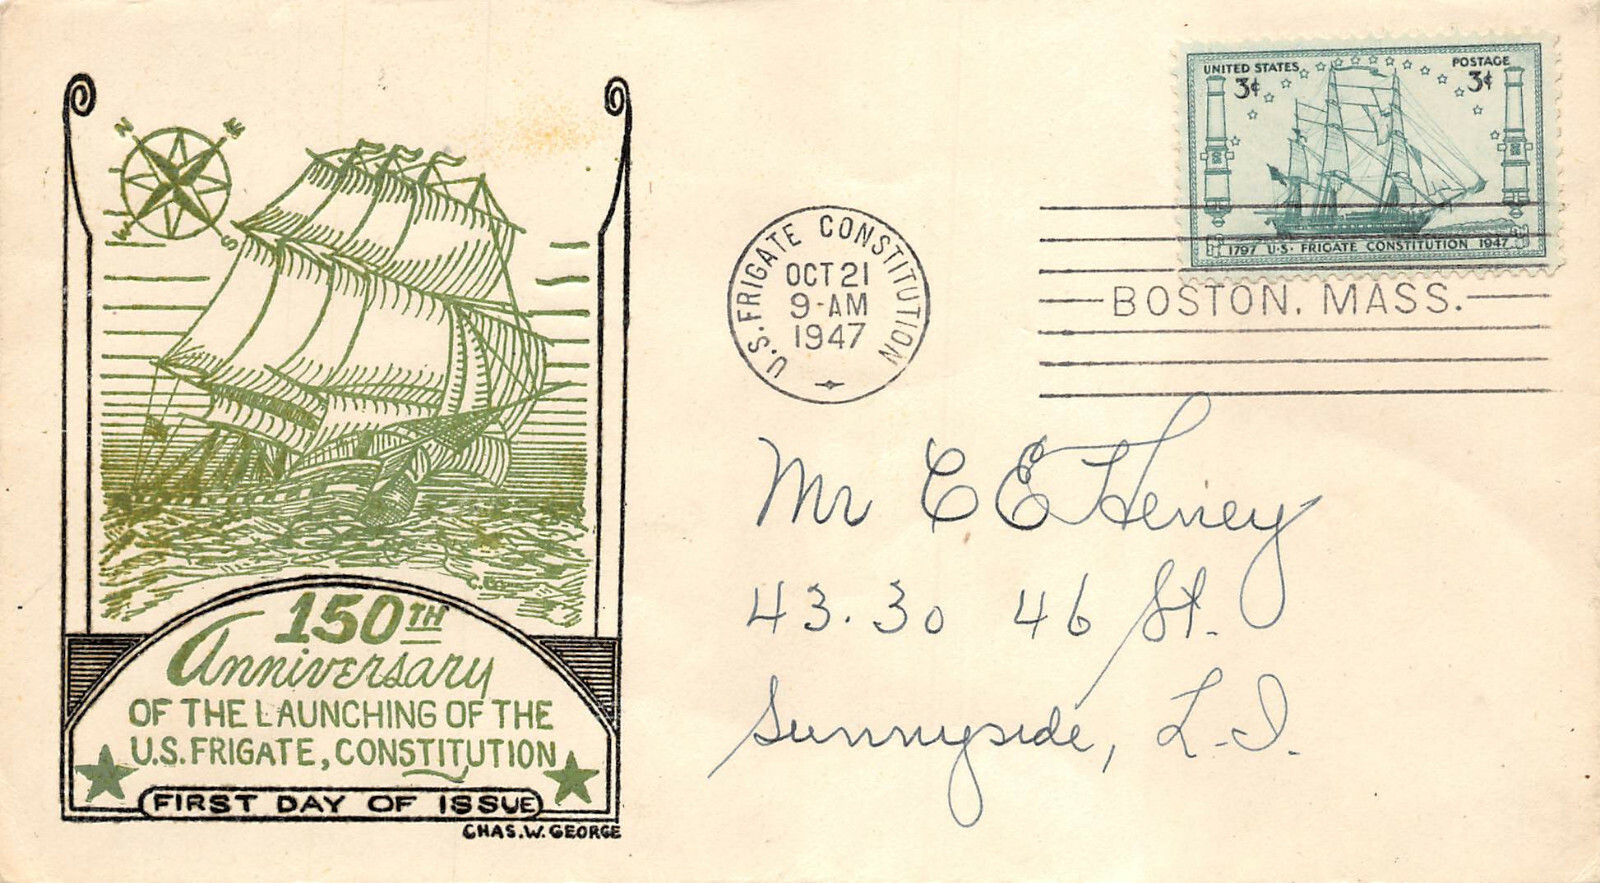 N E
W S
150TH
Anniversary
OF THE LAUNCHING OF THE
U.S. FRIGATE, CONSTITUTION
FIRST DAY OF ISSUE
CHAS. W. GEORGE
U.S. FRIGATE CONSTITUTION
OCT 21
9-AM
1947
UNITED STATES POSTAGE
3¢ 3¢
1797 U·S· FRIGATE CONSTITUTION 1947
BOSTON, MASS.
Mr C E Heney
43·30 46 St.
Sunnyside, L.I.